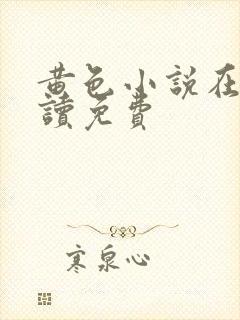 黄色小說在
讀免費
寒泉心